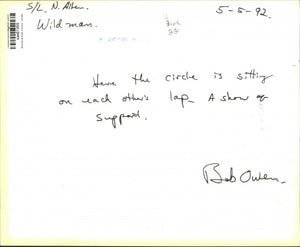 S/L. N. Allen.
5-5-92.
Wild man.
Here the circle is sitting
on each other's lap. A show of
support.
Bob Owen.